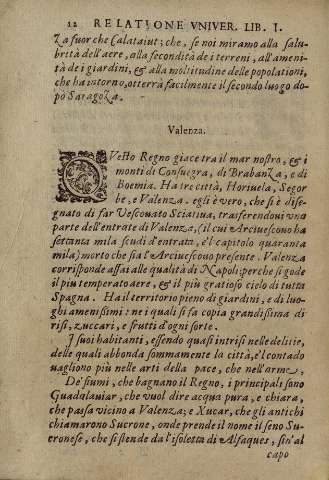 12 RELATIONE VNIVER. LIB. I.
Za fuor che Calataiut; che, se noi miramo alla salu-
brità dell'aere, alla fecondità de i terreni, all'ameni-
tà de i giardini, & alla moltitudine delle popolationi,
che ha intorno, otterrà facilmente il secondo luogo do-
pò SaragoZa.
Valenza.
QVesto Regno giace tra il mar nostro, & i
monti di Consuegra, di BrabanZa, e di
Boemia. Ha tre città, Horiuela, Segor
be, e Valenza. egli è vero, che si è dise-
gnato di far Vescouato Sciatiua, trasferendoui vna
parte dell'entrate di Valenza, (il cui Arciuescouo ha
settanta mila scudi d'entrata, e'l capitolo quaranta
mila) morto che sia l'Arciuescouo presente. Valenza
corrisponde assai alle qualità di Napoli: perche si gode
il piu temperato aere, & il piu gratioso cielo di tutta
Spagna. Ha il territorio pieno di giardini, e di luo-
ghi amenissimi: ne i quali si fa copia grandissima di
risi, zuccari, e frutti d'ogni sorte.
I suoi habitanti, essendo quasi intrisi nelle delitie,
delle quali abbonda sommamente la città, e'l contado
vagliono più nelle arti della pace, che nell'arme,
De' fiumi, che bagnano il Regno, i principali sono
Guadalauiar, che vuol dire acqua pura, e chiara,
che passa vicino a Valenza; e Xucar, che gli antichi
chiamarono Sucrone, onde prende il nome il seno Su-
cronese, che si stende da l'isoletta di Alfaques, sin'al
capo